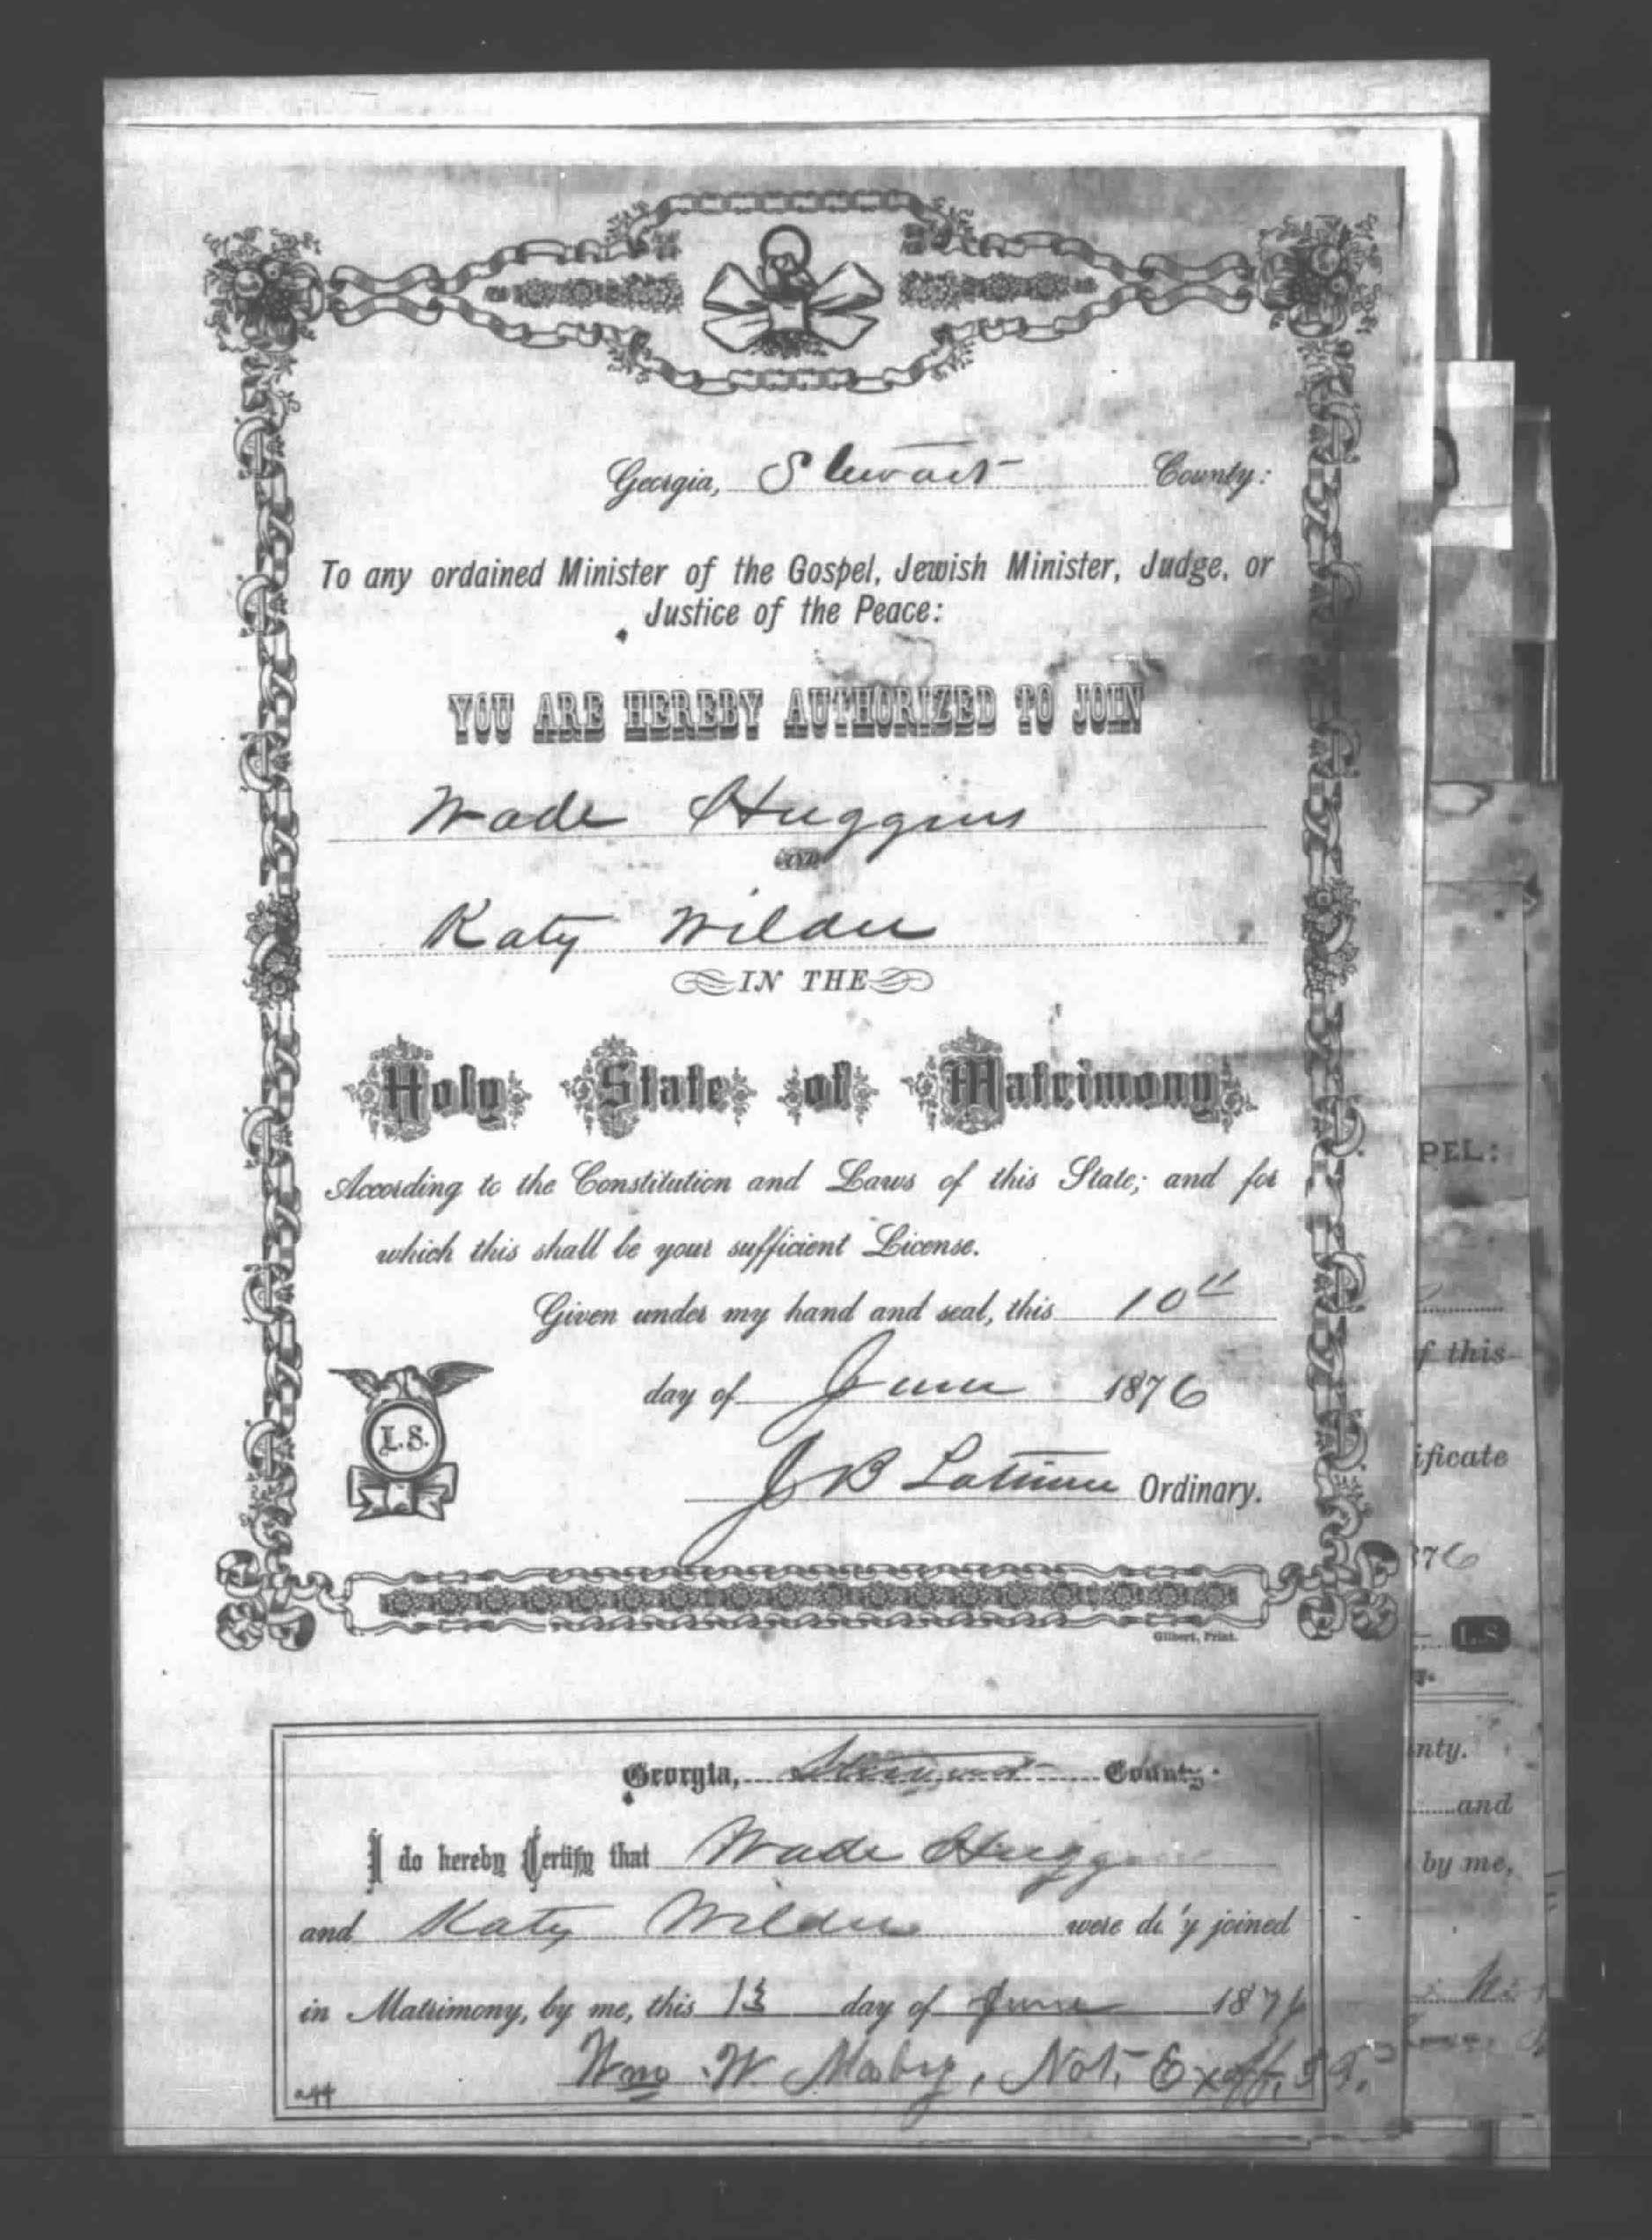 Georgia, Stewart County:
To any ordained Minister of the Gospel, Jewish Minister, Judge, or
Justice of the Peace:
YOU ARE HEREBY AUTHORIZED TO JOIN
Wade Huggins
AND
Katy Wilder
IN THE
Holy State of Matrimony
According to the Constitution and Laws of this State; and for
which this shall be your sufficient License.
Given under my hand and seal, this 10th
day of June 1876
L.S.
J B Latimer Ordinary.
Gilbert, Print.
Georgia, Stewart County.
I do hereby Certify that Wade Hugg
and Katy Wilder were du'y joined
in Matrimony, by me, this 13 day of June 1876
Wm. W Mabry, Not. Exoff. J P.
PEL:
f this
ificate
876
L.S
nty.
and
by me,